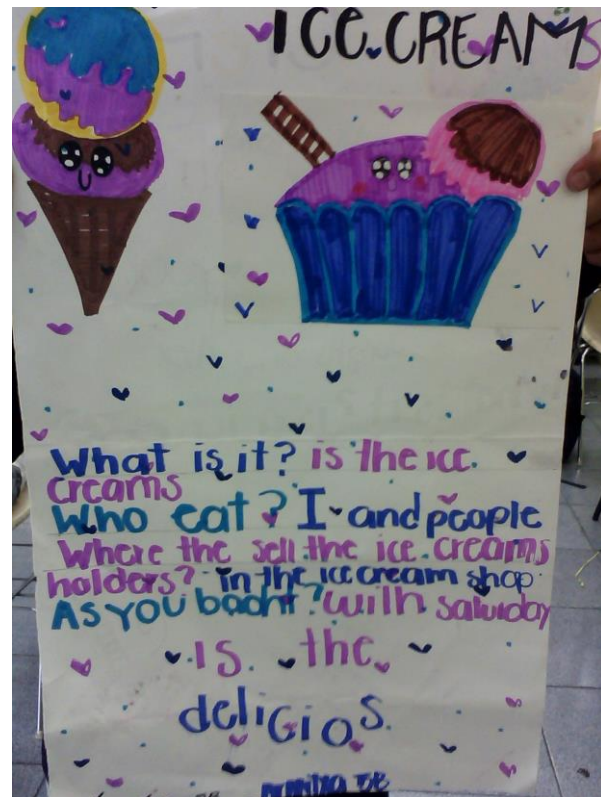 ICE.CREAMS
What is it? is the ice.
creams
Who eat? I and people
Where the sell the ice.creams
holders? in the ice cream shop.
As you bocht? with saturday
is. the
deligios.